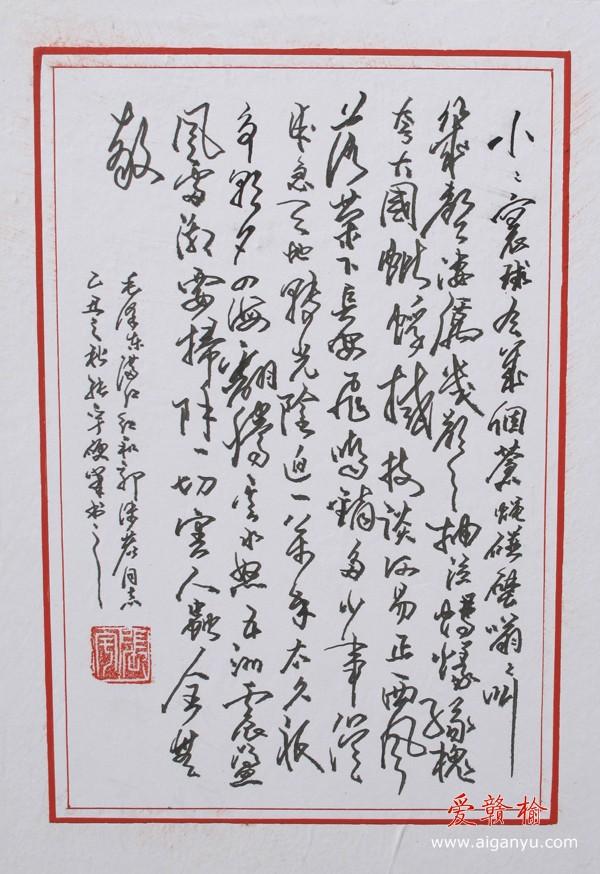 小〻寰球有幾個蒼蠅碰壁嗡〻叫
幾聲凄厲幾聲抽泣螞蟻緣槐
夸大國蚍蜉撼樹談何易正西風
落葉下長安飛鳴鏑多少事從
來急天地轉光陰迫一萬年太久只
爭朝夕四海翻騰雲水怒五洲震盪
風雷激要掃除一切害人蟲全無
敵
毛泽东满江红和郭沫若同志
丑之秋張硬筆書之
爱赣榆
www.aiganyu.com